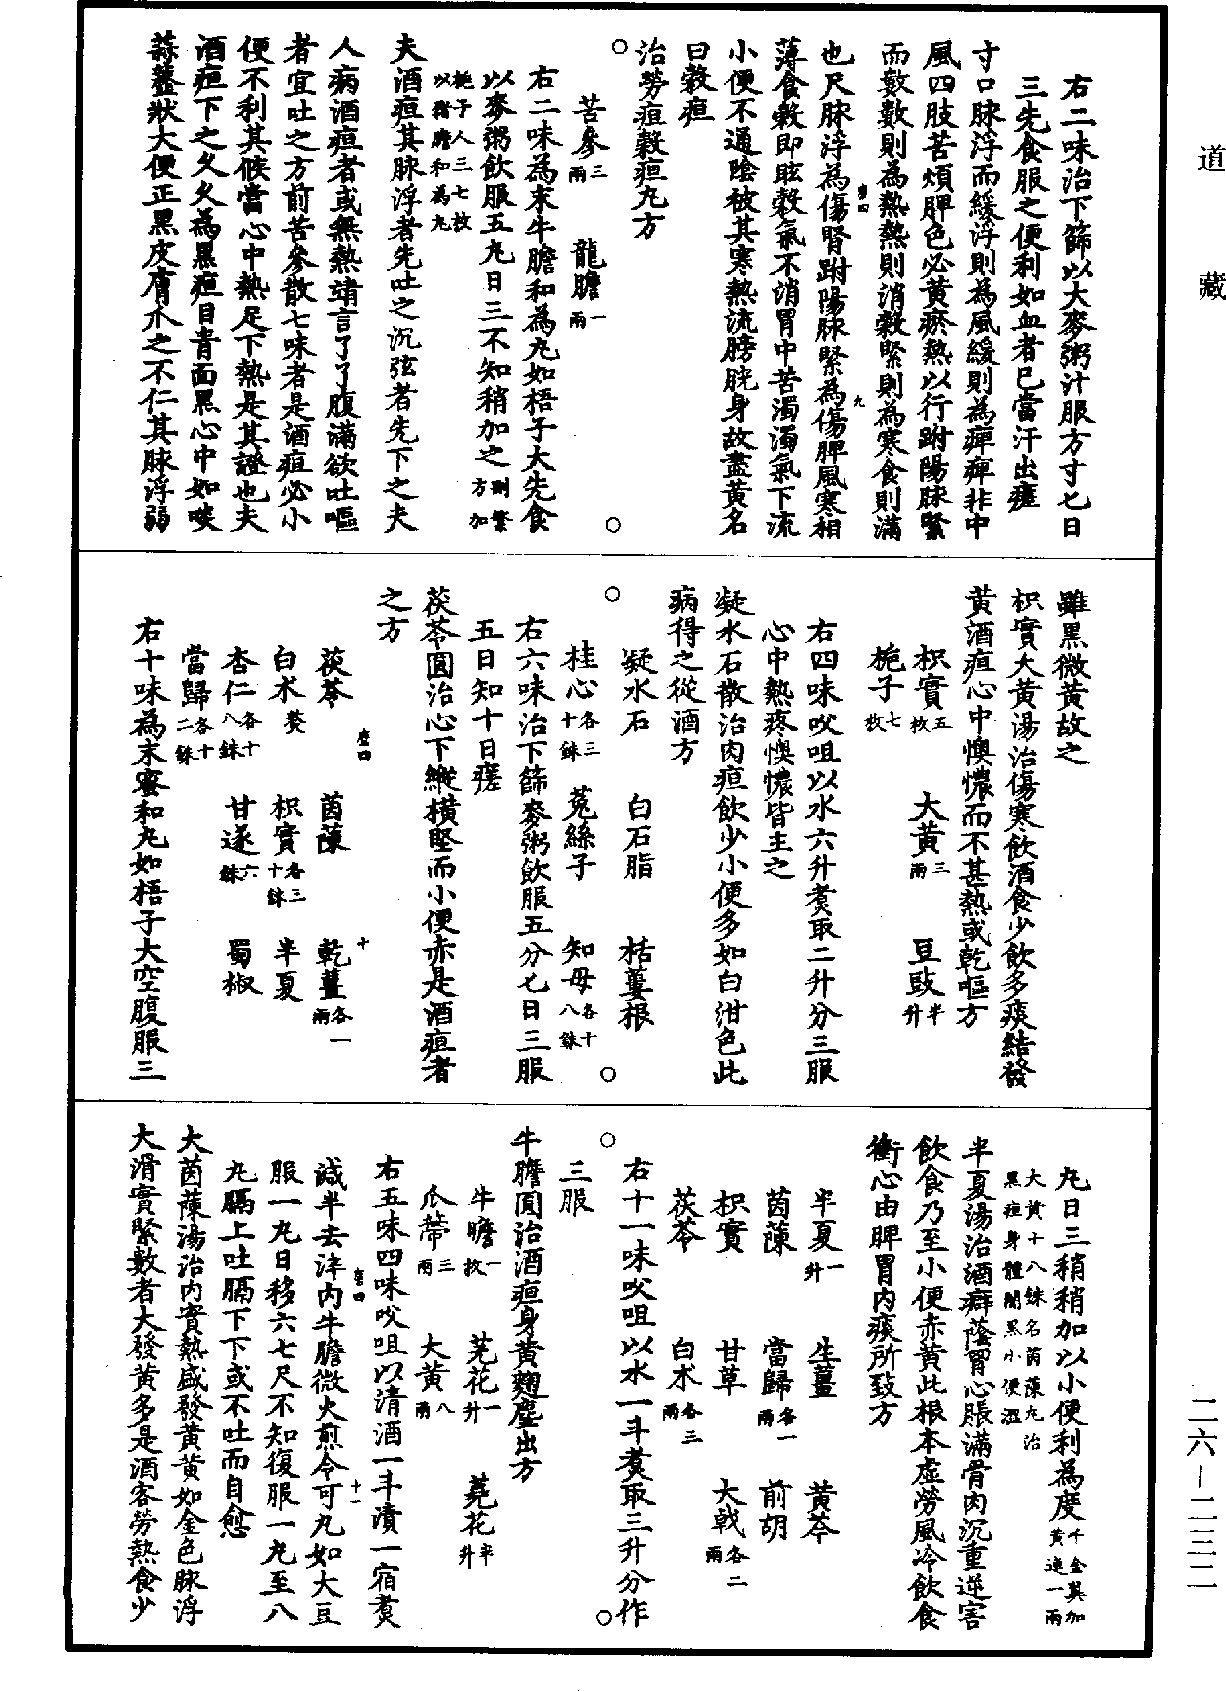 道藏
右二味治下篩以大麥粥汁服方寸匕日
三先食服之便利如血者已當汗出瘥
寸口脉浮而緩浮則為風緩則為痺痺非中
風四肢苦煩脾色必黃瘀熱以行趺陽脉緊
而數數則為熱熱則消穀緊則為寒食則滿
也尺脉浮為傷腎趺陽脉緊為傷脾風寒相
薄食穀即眩穀氣不消胃中苦濁濁氣下流
小便不通陰被其寒熱流膀胱身故盡黃名
曰穀疸
治勞疸穀疸丸方
苦參三兩 龍膽一兩
右二味為末牛膽和為丸如梧子大先食
以麥粥飲服五丸日三不知稍加之刪繁方加
梔子人三七枚以猪膽和為丸
夫酒疸其脉浮者先吐之沉弦者先下之夫
人病酒疸者或無熱靖言了了腹滿欲吐嘔
者宜吐之方前苦參散七味者是酒疸必小
便不利其候當心中熱足下熱是其證也夫
酒疸下之久久為黑疸目青面黑心中如啖
蒜虀狀大便正黑皮膚爪之不仁其脉浮弱
雖黑微黃故之
枳實大黃湯治傷寒飲酒食少飲多痰結發
黃酒疸心中懊憹而不甚熱或乾嘔方
枳實五枚 大黃三兩 豆豉半升
梔子七枚
右四味㕮咀以水六升煮取二升分三服
心中熱疼懊憹皆主之
凝水石散治肉疸飲少小便多如白泔色此
病得之從酒方
凝水石 白石脂 栝蔞根
桂心各三十銖 菟絲子 知母各十八銖
右六味治下篩麥粥飲服五分匕日三服
五日知十日瘥
茯苓圓治心下縱橫堅而小便赤是酒疸者
之方
茯苓 茵蔯 乾薑各一兩
白朮 枳實各三十銖 半夏
杏仁各十八銖 甘遂六銖 蜀椒
當歸各十二銖
右十味為末蜜和丸如梧子大空腹服三
丸日三稍稍加以小便利為度千金翼加黃連一兩
大黃十八銖名茵蔯丸治黑疸身體闇黑小便澀
半夏湯治酒癖蔭胃心脹滿骨肉沉重逆害
飲食乃至小便赤黃此根本虛勞風冷飲食
衝心由脾胃內痰所致方
半夏一升 生薑 黃芩
茵蔯 當歸各一兩 前胡
枳實 甘草 大戟各二兩
茯苓 白朮各三兩
右十一味㕮咀以水一斗煮取三升分作
三服
牛膽圓治酒疸身黃麴塵出方
牛膽一枚 芫花一升 蕘花半升
瓜蒂三兩 大黃八兩
右五味四味㕮咀以清酒一斗漬一宿煮
減半去滓內牛膽微火煎令可丸如大豆
服一丸日移六七尺不知復服一丸至八
丸膈上吐膈下下或不吐而自愈
大茵蔯湯治內實熱盛發黃黃如金色脉浮
大滑實緊數者大發黃多是酒客勞熱食少
二六—二三二